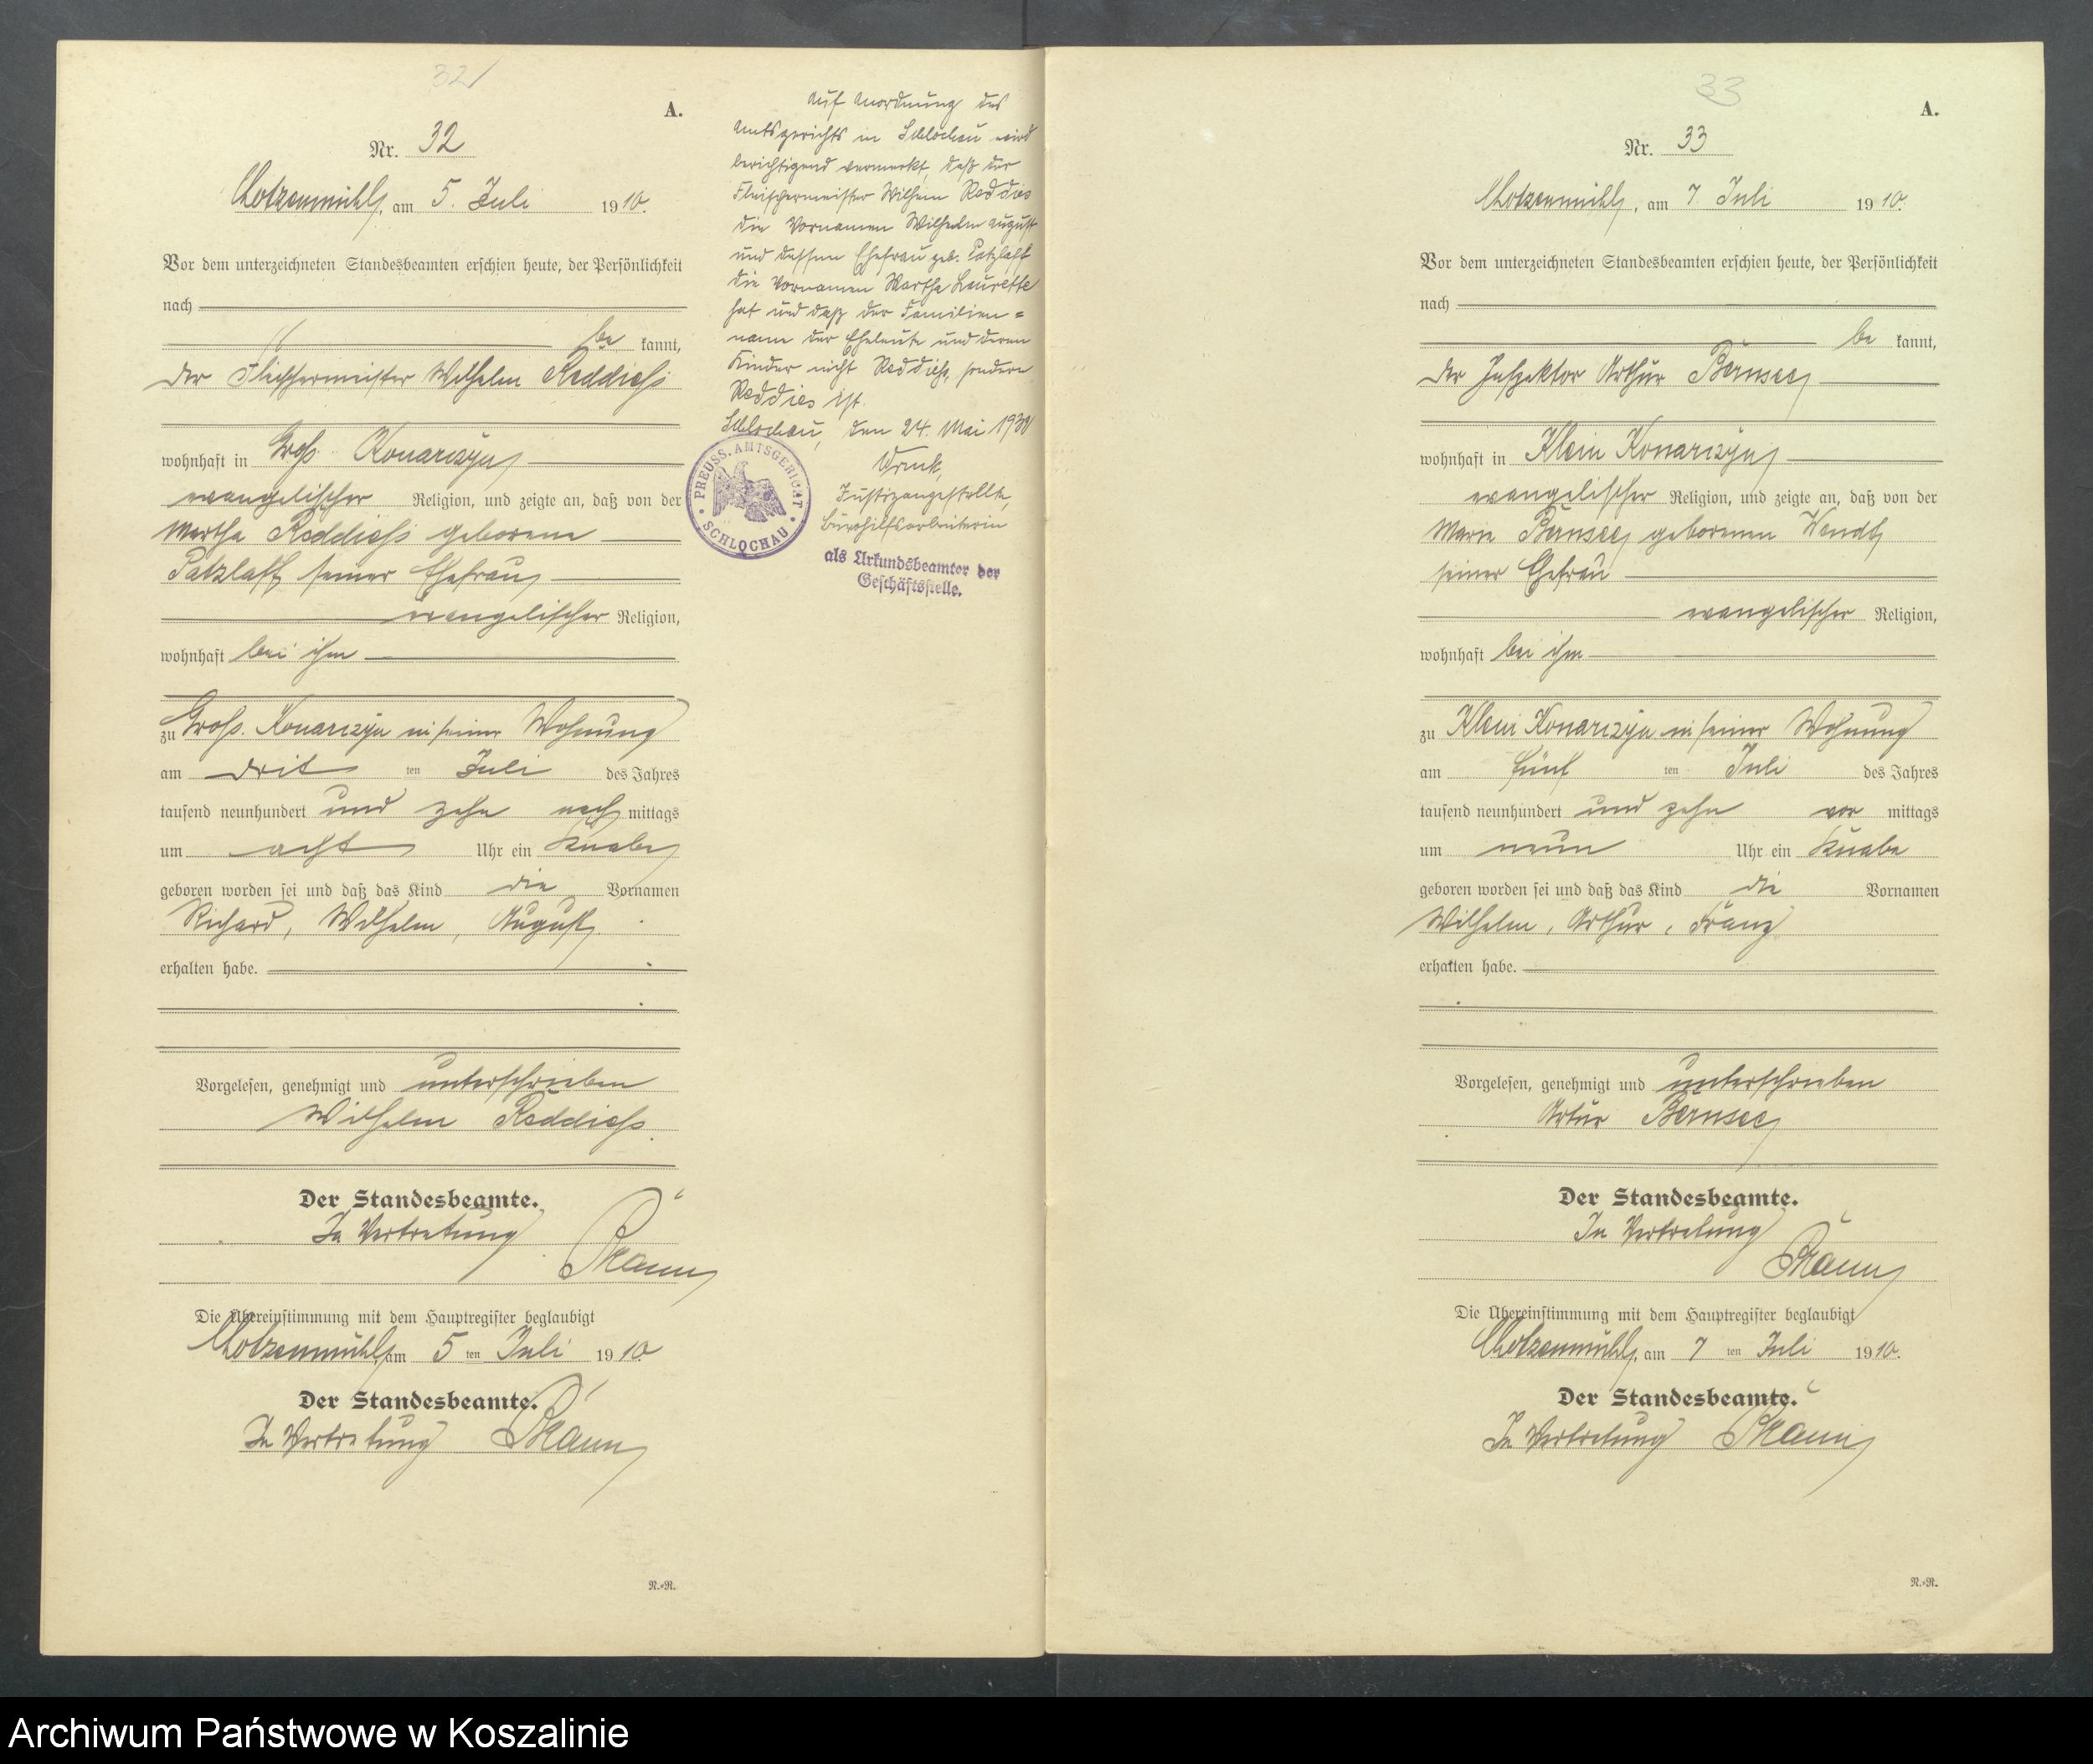 32
A.
Nr. 32
Chotzenmühl, am 5. Juli 1910.
Vor dem unterzeichneten Standesbeamten erschien heute, der Persönlichkeit
nach
be kannt,
der Fleischermeister Wilhelm Reddiess
wohnhaft in Gross Konarczyn
evangelischer Religion, und zeigte an, daß von der
Martha Reddiess geborene
Patzlaff seiner Ehefrau,
evangelischer Religion,
wohnhaft bei ihm
zu Gross Konarczyn in seiner Wohnung
am drit ten Juli des Jahres
tausend neunhundert und zehn nach mittags
um acht Uhr ein Knabe
geboren worden sei und daß das Kind die Vornamen
Richard, Wilhelm, August
erhalten habe.
Vorgelesen, genehmigt und unterschrieben
Wilhelm Reddiess.
Der Standesbeamte.
In Vertretung
Die Übereinstimmung mit dem Hauptregister beglaubigt
Chotzenmühl, am 5 ten Juli 1910.
Der Standesbeamte.
In Vertretung
R.=R.
Auf Anordnung des
Amtsgerichts in Schlochau wird
berichtigend vermerkt, daß der
Fleischermeister Wilhelm Reddies
die Vornamen Wilhelm August
und dessen Ehefrau geb. Patzlaff
die Vornamen Martha Laurette
hat und daß der Familien=
name der Eheleute und deren
Kinder nicht Reddiess, sondern
Reddies ist.
Schlochau, den 24. Mai 1938
Justizangestellte,
Bürohilfsarbeiterin
als Urkundsbeamter der
Geschäftsstelle.
PREUSS. AMTSGERICHT
SCHLOCHAU
33
A.
Nr. 33
Chotzenmühl, am 7 Juli 1910.
Vor dem unterzeichneten Standesbeamten erschien heute, der Persönlichkeit
nach
be kannt,
der Inspektor Arthur Bernsee
wohnhaft in Klein Konarczyn
evangelischer Religion, und zeigte an, daß von der
Marie Bernsee geborenen Wendt
seiner Ehefrau
evangelischer Religion,
wohnhaft bei ihm
zu Klein Konarczyn in seiner Wohnung
am fünf ten Juli des Jahres
tausend neunhundert und zehn vor mittags
um neun Uhr ein Knabe
geboren worden sei und daß das Kind die Vornamen
Wilhelm, Arthur, Franz
erhalten habe.
Vorgelesen, genehmigt und unterschrieben
Artur Bernsee
Der Standesbeamte.
In Vertretung
Die Übereinstimmung mit dem Hauptregister beglaubigt
Chotzenmühl, am 7 ten Juli 1910.
Der Standesbeamte.
In Vertretung
R.=R.
Archiwum Państwowe w Koszalinie